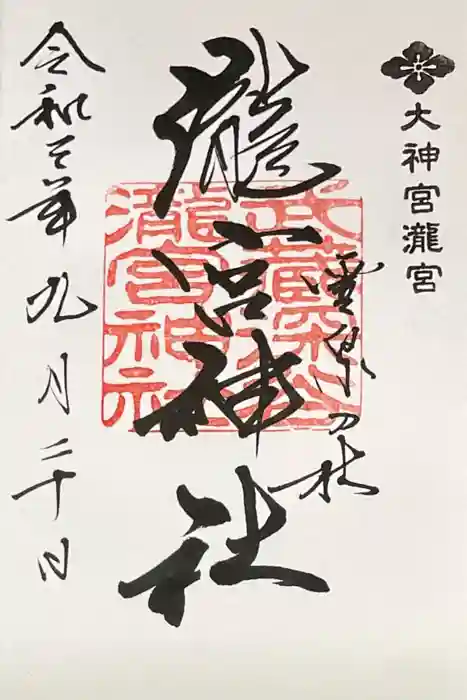 大神宮瀧宮
霊泉の杜
瀧宮神社
武蔵深谷
瀧宮神社
令和三年九月二十日